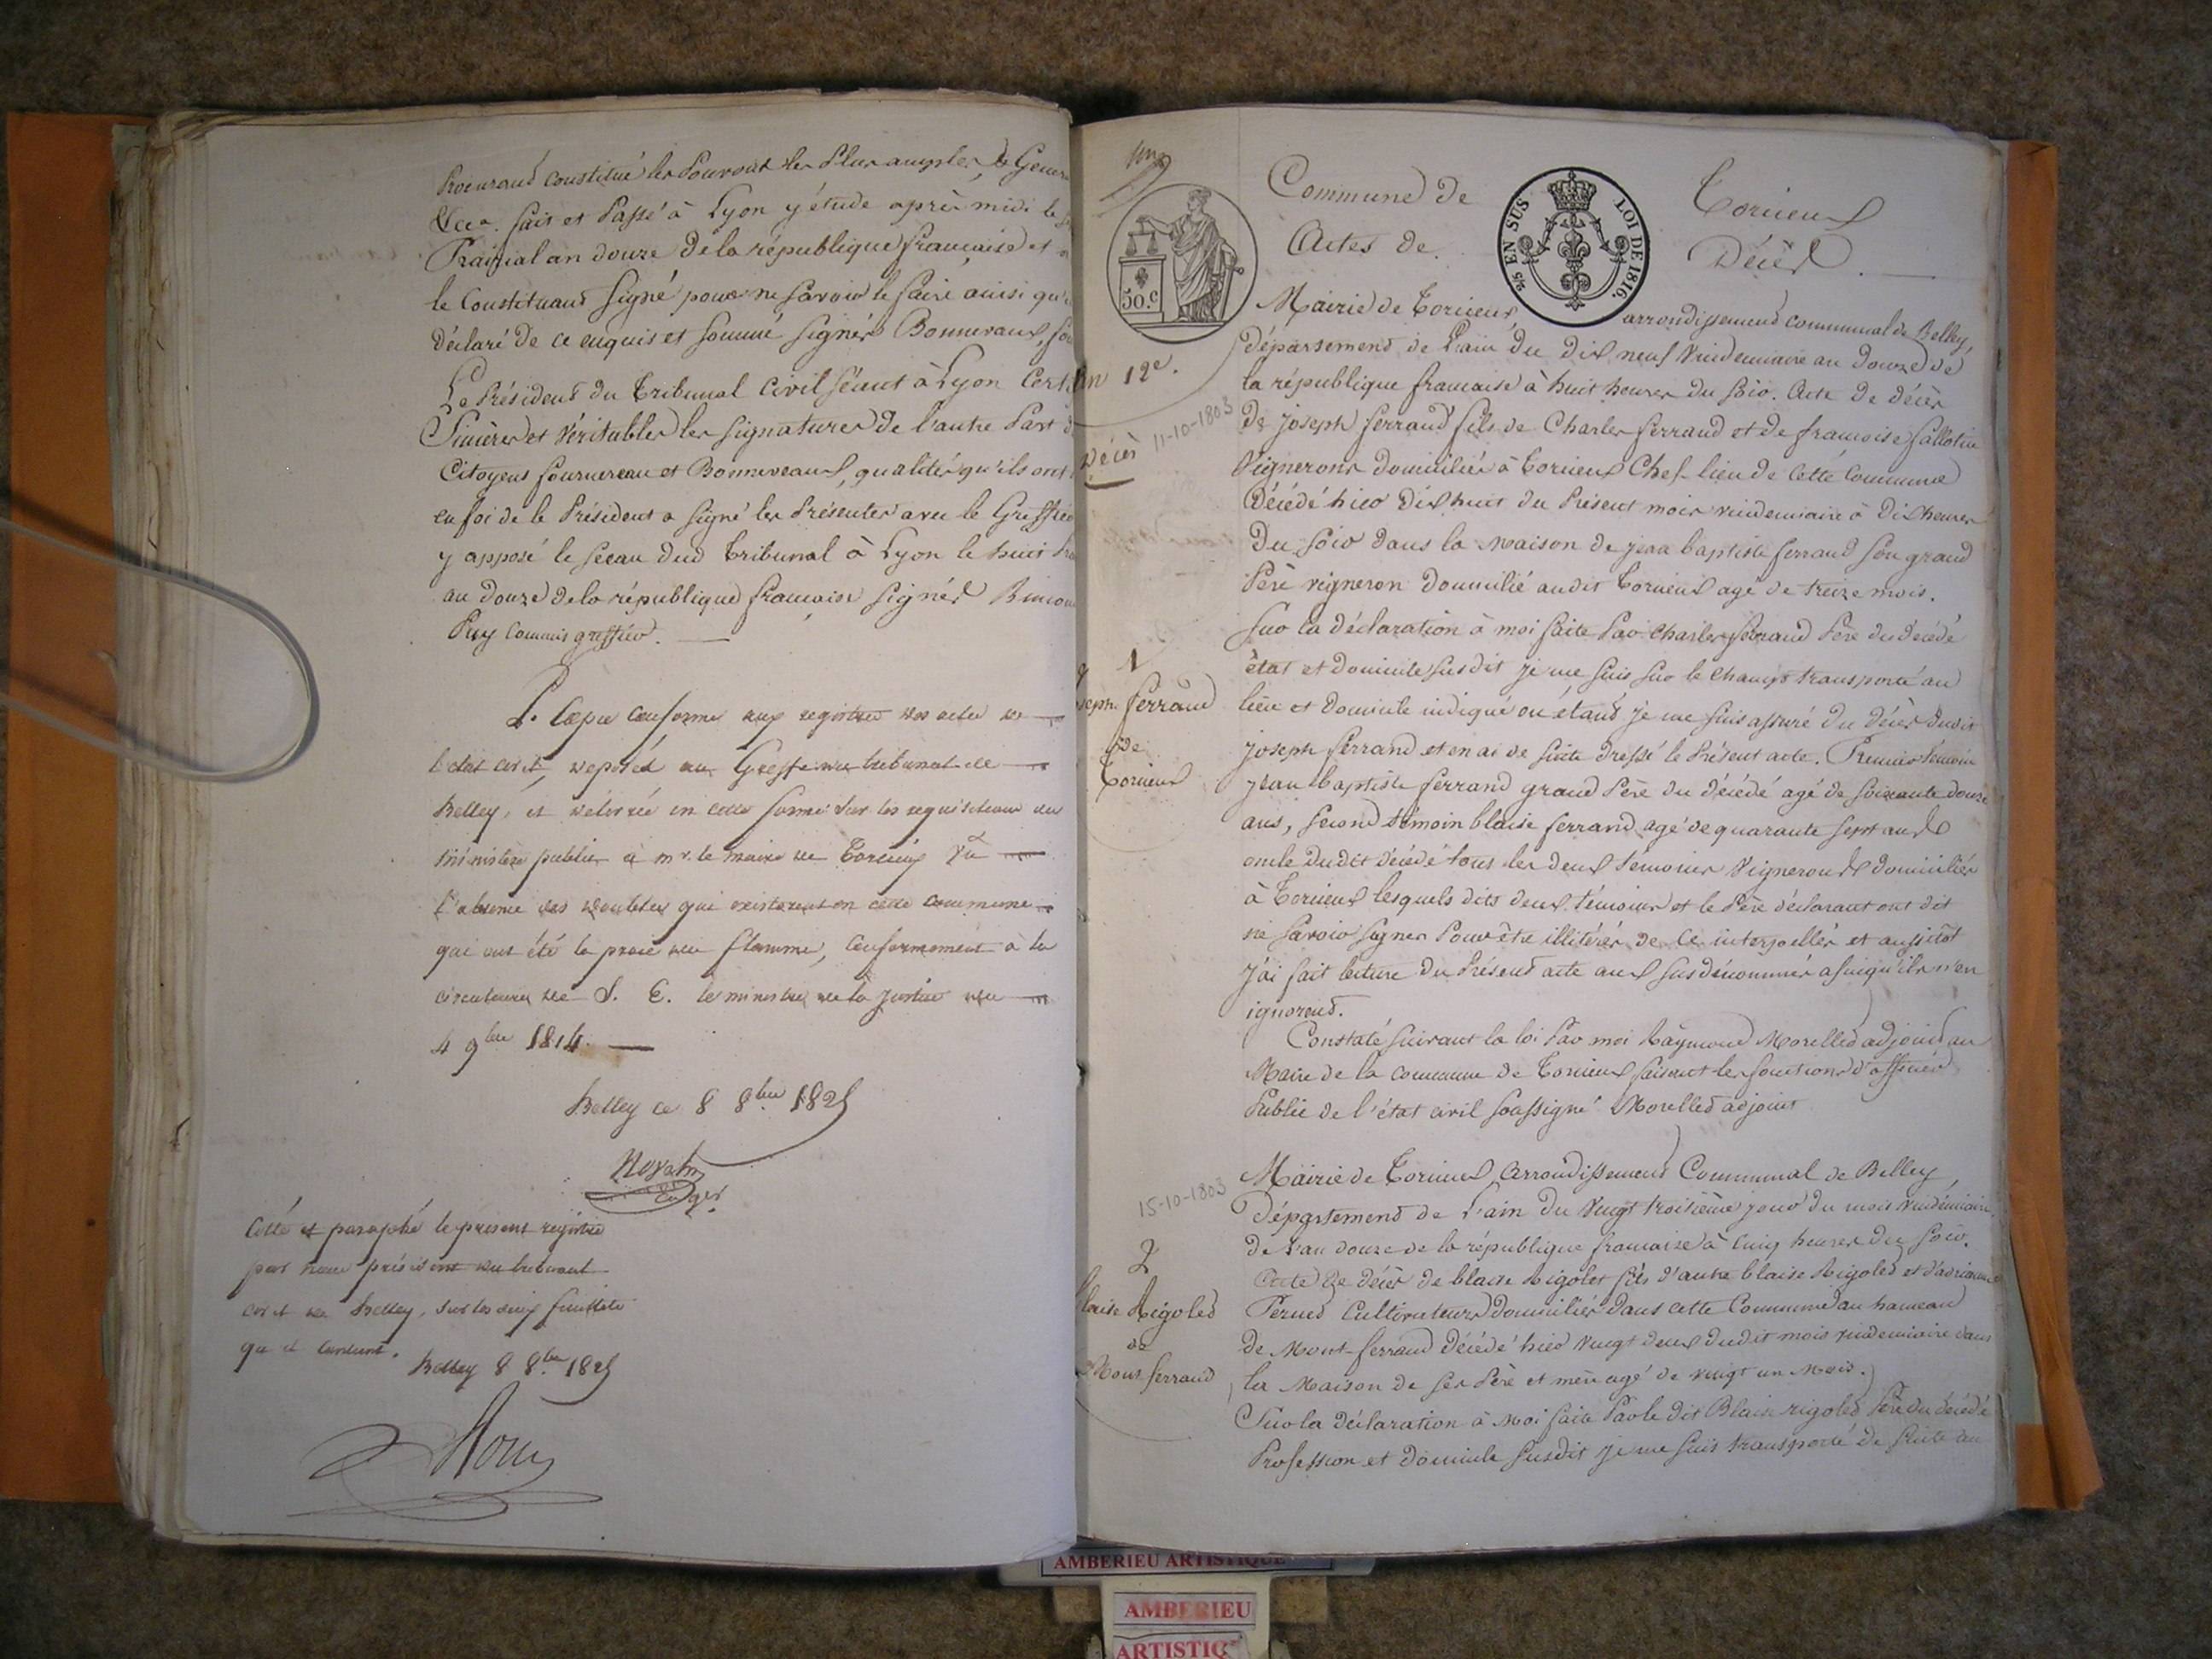 Procurant constitué les Pouvoirs les Plus amples, & Géner
&cca. fait et Passé à Lyon y étude après midi le
Prairial an douze de la république française et
le Constituant Signé pour ne savoir le faire ainsi qu'
déclaré de ce enquis et sommé Signés Bonnevaux,
Le Président du Tribunal Civil séant à Lyon Cert
Sincères et Véritables les signatures de l'autre Part
Citoyens fournereau et Bonneveaux, qualités qu'ils ont
en foi de le Président a Signé les Présentes avec le Greffier
y apposé le sceau dud Tribunal à Lyon le huit
an douze de la république française Signés
Puy Commis greffier.
P. Copie Conforme aux registres des actes de
l'état civil, déposés au Greffe du tribunal de
Belley, et délivrée en cette forme sur les réquisitions du
ministère public à mr. le maire de Torcieu vû
l'absence des doubles qui existaient en cette commune
qui ont été la proie des flammes, Conformément à la
circulaire de S. E. le ministre de la Justice du
4 9bre 1814.
Belley ce 8 8bre 1825
Cotté et paraphé le présent registre
par nous président du tribunal
civil de Belley, sur les feuillets
qu'il contient.
Belley 8 8bre 1825
50.c
2/5 EN SUS
LOI DE 1816.
Commune de Torcieux
Actes de Décès.
An 12e.
Décès
11-10-1803
Mairie de Torcieux, arrondissement communal de Belley,
département de l'ain du dix neuf Vindemiaire an douze de
la république française à huit heures du soir. Acte de décès
de joseph ferrand fils de Charles ferrand et de françoise
Vignerons domiciliés à Torcieux Chef-lieu de cette Commune
décédé hier dix huit du Présent mois vindemiaire à dix heures
du soir dans la maison de jean baptiste ferrand son grand
Père vigneron domicilié audit Torcieux agé de treize mois.
Sur la déclaration à moi faite Par Charles ferrand Père du décédé
1
joseph ferrand
de
Torcieux
état et domicile susdit je me suis sur le champs transporté au
lieu et domicile indiqué où étant je me suis assuré du décès dudit
joseph ferrand et en ai de suite dressé le Présent acte. Premier témoin
jean baptiste ferrand grand Père du décédé agé de soixante douze
ans, second témoin blaise ferrand agé de quarante sept ans
oncle dudit décédé tous les deux témoins Vignerons domiciliés
à Torcieux lesquels dits deux témoins et le Père déclarant ont dit
ne savoir signer Pour être illitérés de ce interpellés et aussitôt
j'ai fait lecture du Présent acte aux susdénommés afin qu'ils n'en
ignorent.
Constaté suivant la loi Par moi Raymond Morellet adjoint au
Maire de la commune de Torcieux faisant les fonctions d'officier
Public de l'état civil soussigné Morellet adjoint
15-10-1803
Mairie de Torcieux, Arrondissement Communal de Belley
Département de l'ain du Vingt troisième jour du mois vindemiaire
de l'an douze de la république française à cinq heures du soir.
2
blaise Rigolet
de
Mont ferrand
Acte de décès de blaise Rigolet fils d'autre blaise Rigolet et d'adrianne
Pernet Cultivateurs domiciliés dans cette Commune au hameau
de Mont-ferrand décédé hier vingt deux dudit mois vindemiaire dans
la Maison de ses Père et mère agé de vingt un Mois.
Sur la déclaration à Moi faite Par le dit Blaise rigolet Père du décédé
Profession et domicile susdit je me suis transporté de suite au
AMBERIEU ARTISTIQUE
AMBERIEU
ARTISTIQ